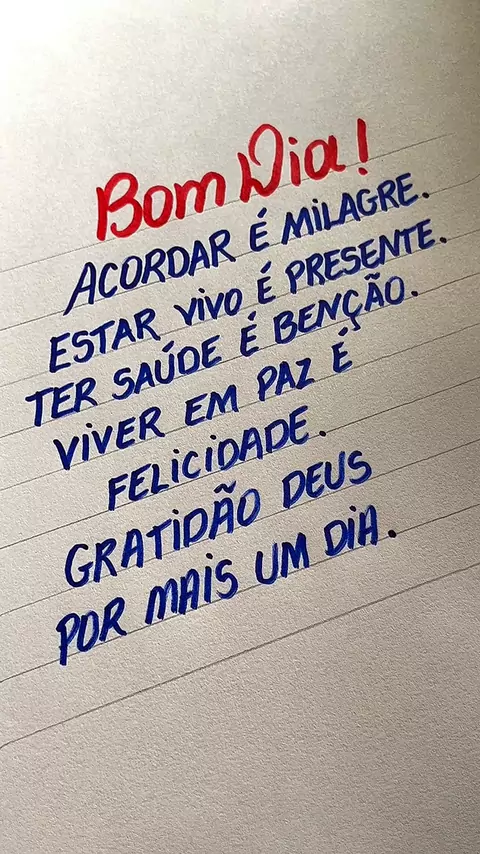 Bom Dia!
ACORDAR É MILAGRE.
ESTAR VIVO É PRESENTE.
TER SAÚDE É BENÇÃO.
VIVER EM PAZ É
FELICIDADE.
GRATIDÃO DEUS
POR MAIS UM DIA.